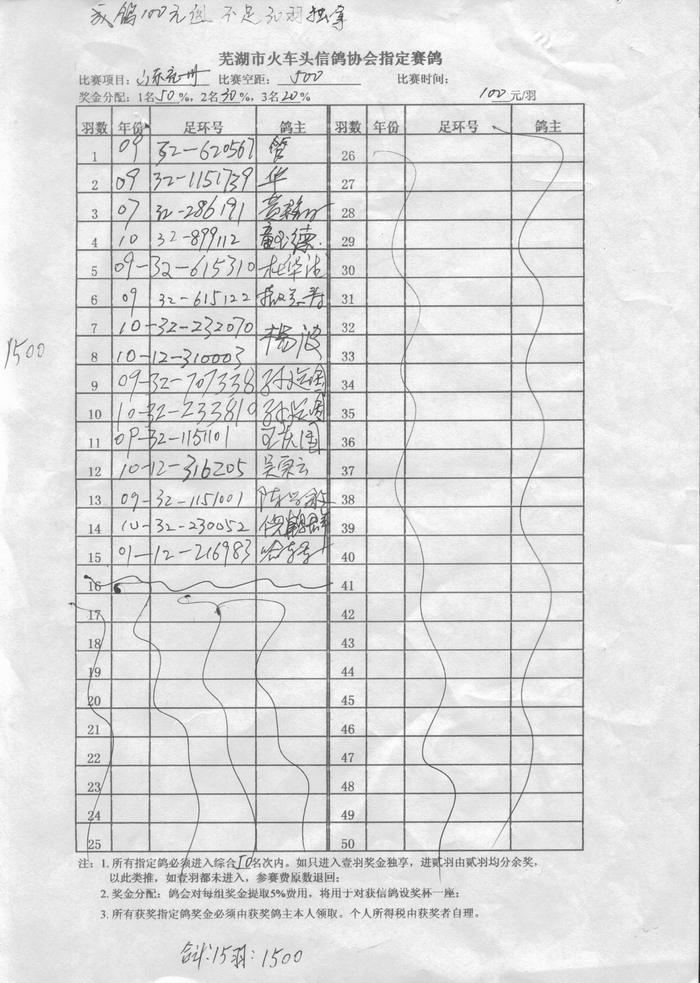 鸽100元 不足30羽独拿
芜湖市火车头信鸽协会指定赛鸽
比赛项目：山东兖州 比赛空距：500 比赛时间：
奖金分配：1名50%，2名30%，3名20% 100元/羽
羽数 年份 足环号 鸽主 羽数 年份 足环号 鸽主
1 09 32-620567 管 26
2 09 32-1151739 华 27
3 07 32-286191 黄 28
4 10 32-899112 德 29
5 09-32-615310 杜华 30
6 09 32-615122 31
7 10-32-232070 杨波 32
8 10-12-310003 33
9 09-32-707338 孙定国 34
10 10-32-233810 孙定国 35
11 09-32-115101 国 36
12 10-12-316205 吴云 37
13 09-32-1151001 陈 38
14 10-32-230052 倪 39
15 01-12-216983 40
16 41
17 42
18 43
19 44
20 45
21 46
22 47
23 48
24 49
25 50
1500
注：1. 所有指定鸽必须进入综合50名次内。如只进入壹羽奖金独享，进贰羽由贰羽均分余奖，
以此类推，如壹羽都未进入，参赛费原数退回；
2. 奖金分配：鸽会对每组奖金提取5%费用，将用于对获信鸽设奖杯一座；
3. 所有获奖指定鸽奖金必须由获奖鸽主本人领取。个人所得税由获奖者自理。
合计：15羽：1500